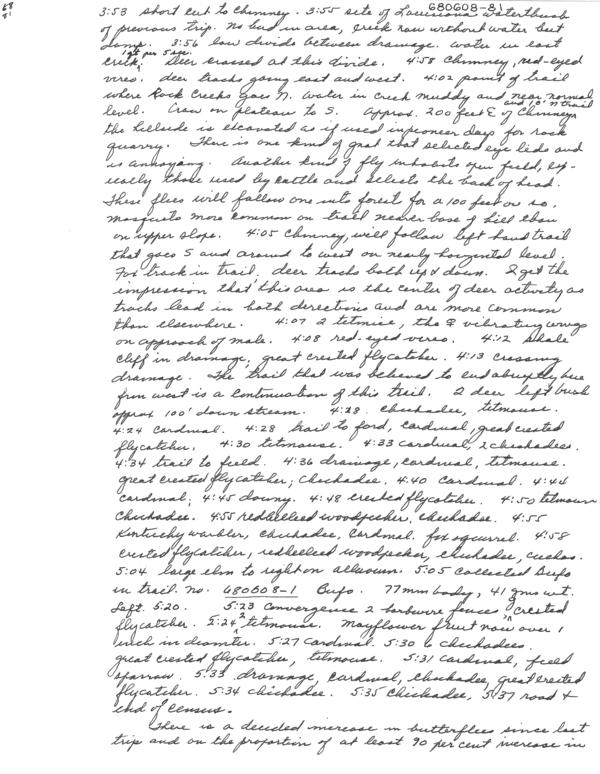 68
81
680608-81
3:53 short cut to chimney. 3:55 site of Louisiana waterthrush
of previous trip. No bird in area, creek now without water but
damp. 3:56 low divide between drainage. water in east
creek, 1 gal per 5 sec. Deer crossed at this divide. 4:58 Chimney, red-eyed
vireo. deer tracks going east and west. 4:02 point of trail
where Rock Creeks goes N. water in creek muddy and near normal
level. Crow on plateau to S. Approx. 200 feet E of Chimney and 10' N trail
the hillside is excavated as if used in pioneer days for rock
quarry. There is one kind of gnat that selected eye lids and
is annoying. Another kind of fly inhabits open field, esp-
ecially those used by cattle and selects the back of head.
These flies will follow one into forest for a 100 feet or so.
Mosquito more common on trail nearer base of hill than
on upper slope. 4:05 Chimney, will follow left hand trail
that goes S and around to west on nearly horizontal level.
Fox track in trail, deer tracks both up & down. I get the
impression that this area is the center of deer activity as
tracks lead in both directions and are more common
than elsewhere. 4:07 2 titmice, the ♀ vibrating wings
on approach of male. 4:08 red-eyed vireo. 4:12 shale
cliff in drainage, great crested flycatcher. 4:13 crossing
drainage. The trail that was believed to end abruptly here
from west is a continuation of this trail. 2 deer left brush
approx 100' down stream. 4:23. chickadee, titmouse.
4:24 cardinal. 4:28 trail to ford, cardinal, great crested
flycatcher. 4:30 titmouse. 4:33 cardinal, 2 chickadees.
4:34 trail to field. 4:36 drainage, cardinal, titmouse.
great crested flycatcher, chickadee. 4:40 cardinal. 4:44
cardinal, 4:45 downy. 4:48 crested flycatcher. 4:50 titmouse
chickadee. 4:55 redbellied woodpecker, chickadee. 4:55
Kentucky warbler, chickadee, cardinal. fox squirrel. 4:58
crested flycatcher, redbellied woodpecker, chickadee, cuckoo.
5:04 large elm to right on alluvium. 5:05 collected Bufo
in trail. no. 680608-1 Bufo. 77mm body, 41 gms wt.
Left 5:20. 5:23 Convergence 2 barbwire fences, crested
flycatcher. 5:24 2 titmouse. Mayflower fruit now over 1
inch in diameter. 5:27 cardinal. 5:30 6 chickadees.
great crested flycatcher, titmouse. 5:31 cardinal, field
sparrow. 5:33 drainage, cardinal, chickadee, great crested
flycatcher. 5:34 chickadee. 5:35 chickadee, 5:37 road &
end of census.
There is a decided increase in butterflies since last
trip and on the proportion of at least 90 per cent increase in